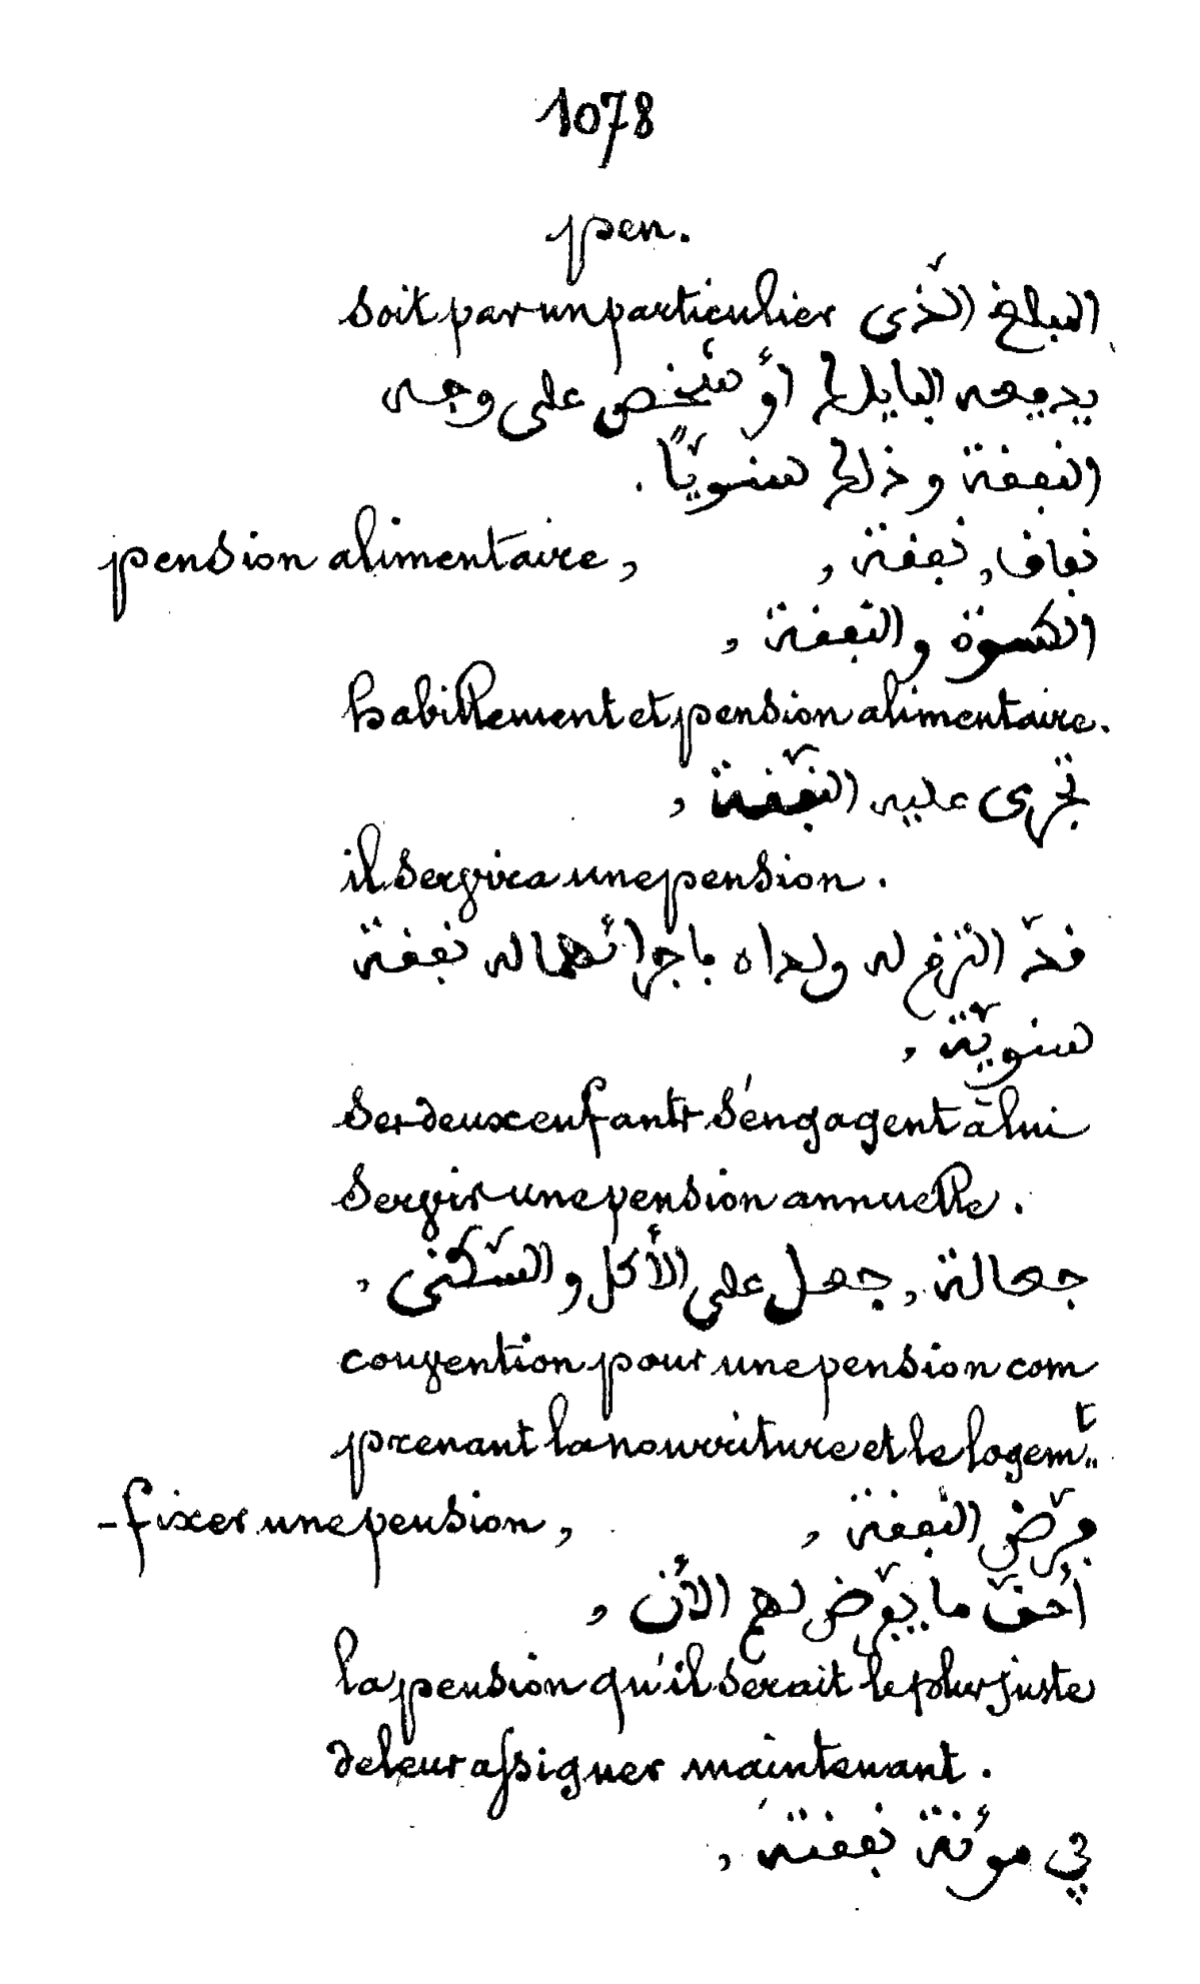 1078
pen.
soit par un particulier المبلغ الذّى
يدفعه البايلك أو شخص على وجه
النفقة وذلك سنويًّا.
pension alimentaire, نفاق, نفقة,
الكسوة والنفقة,
habillement et pension alimentaire.
تجرى عليه النفقة,
il servira une pension.
قد التزم له ولداه باجرائهما له نفقة
سنويّة,
ses deux enfants s'engagent à lui
servir une pension annuelle.
جعالة, جعل على الأكل والسّكنى,
convention pour une pension com
prenant la nourriture et le logem.t
- fixer une pension, فرض النفقة,
أحق ما يفرض لهم الأن,
la pension qu'il serait le plus juste
de leur assigner maintenant.
في مؤنة نفقته,